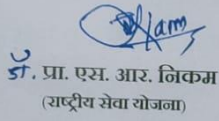 डॉ. प्रा. एस. आर. निकम
(राष्ट्रीय सेवा योजना)